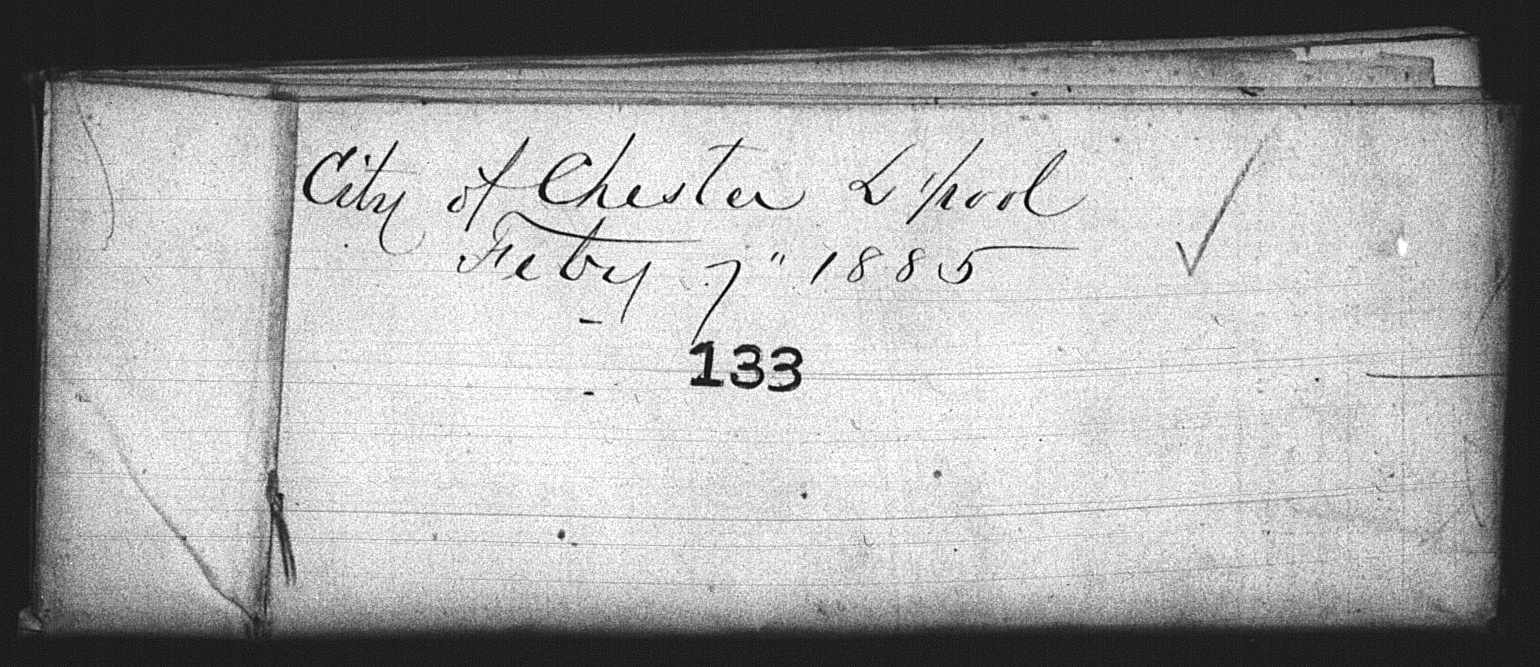 City of Chester L'pool
Feby 7" 1885
133